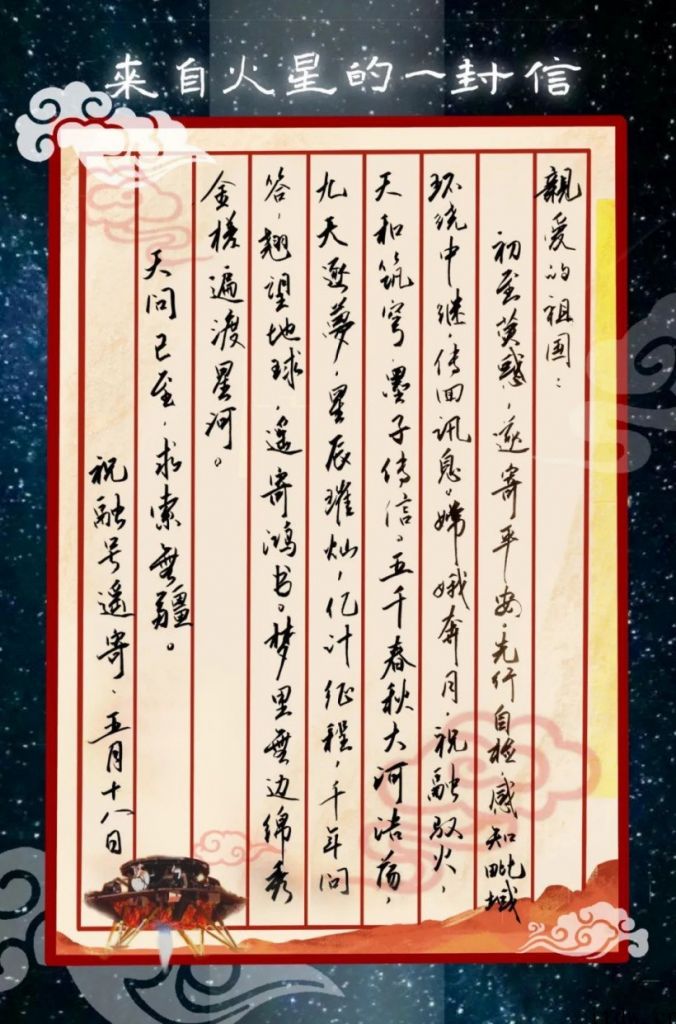 來自火星的一封信
親爱的祖国：
初至荧惑，遂寄平安。先行自检，感知毗域
环绕中继，传回讯息。嫦娥奔月，祝融驭火，
天和筑穹，墨子传信。五千春秋大河浩荡，
九天逐夢，星辰璀灿，亿计征程，千年问
答，翘望地球，遥寄鸿书。梦里無边绵秀
金槎遍渡星河。
天问已至，求索無疆。
祝融号遥寄，五月十八日